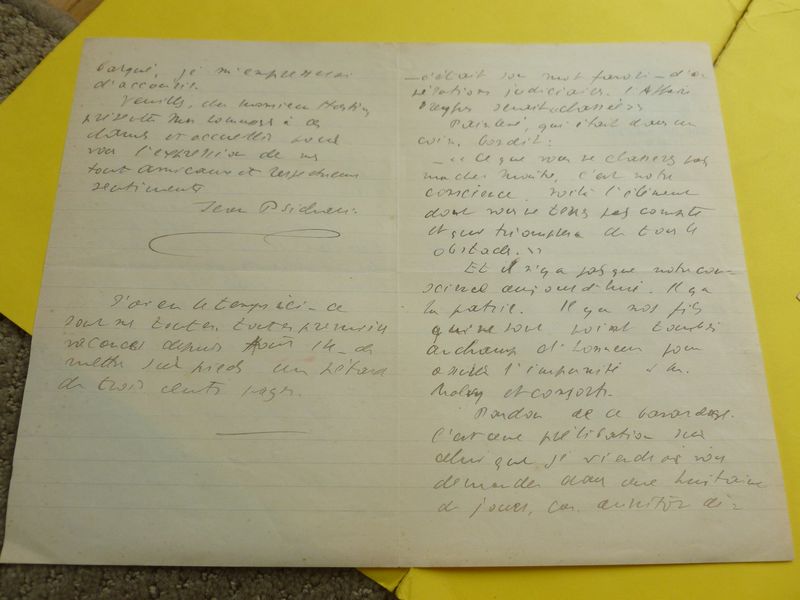 barqué, je m'empresserai
d'accourir.
Veuillez, cher monsieur
présenter mes hommages à ces
dames et accueillir pour
vous l'expression de mes
tout amicaux et respectueux
sentiments
Jean Psichari.
J'ai eu le temps ici — ce
sont mes toutes toutes premières
vacances depuis Août 14 — de
mettre sur pieds un pétard
de trois cents pages.
— c'était son mot favori — d'o-
pérations judiciaires. l'Affaire
Dreyfus
Painlevé, qui était dans un
coin, bondit:
— « Ce que vous ne chasserez pas
c'est notre
conscience. Voilà l'élément
dont vous ne tenez pas compte
et qui triomphera de tous les
obstacles. »
Et il n'y a pas que notre con-
science aujourd'hui. Il y a
la patrie. Il y a nos fils
qui ne sont point tombés
au champ d'honneur pour
assurer l'impunité à M.
Malvy et consorts.
Pardon de ce bavardage.
C'est une prélibation sur
celui que je viendrai vous
demander dans une huitaine
de jours, car aussitôt dé-